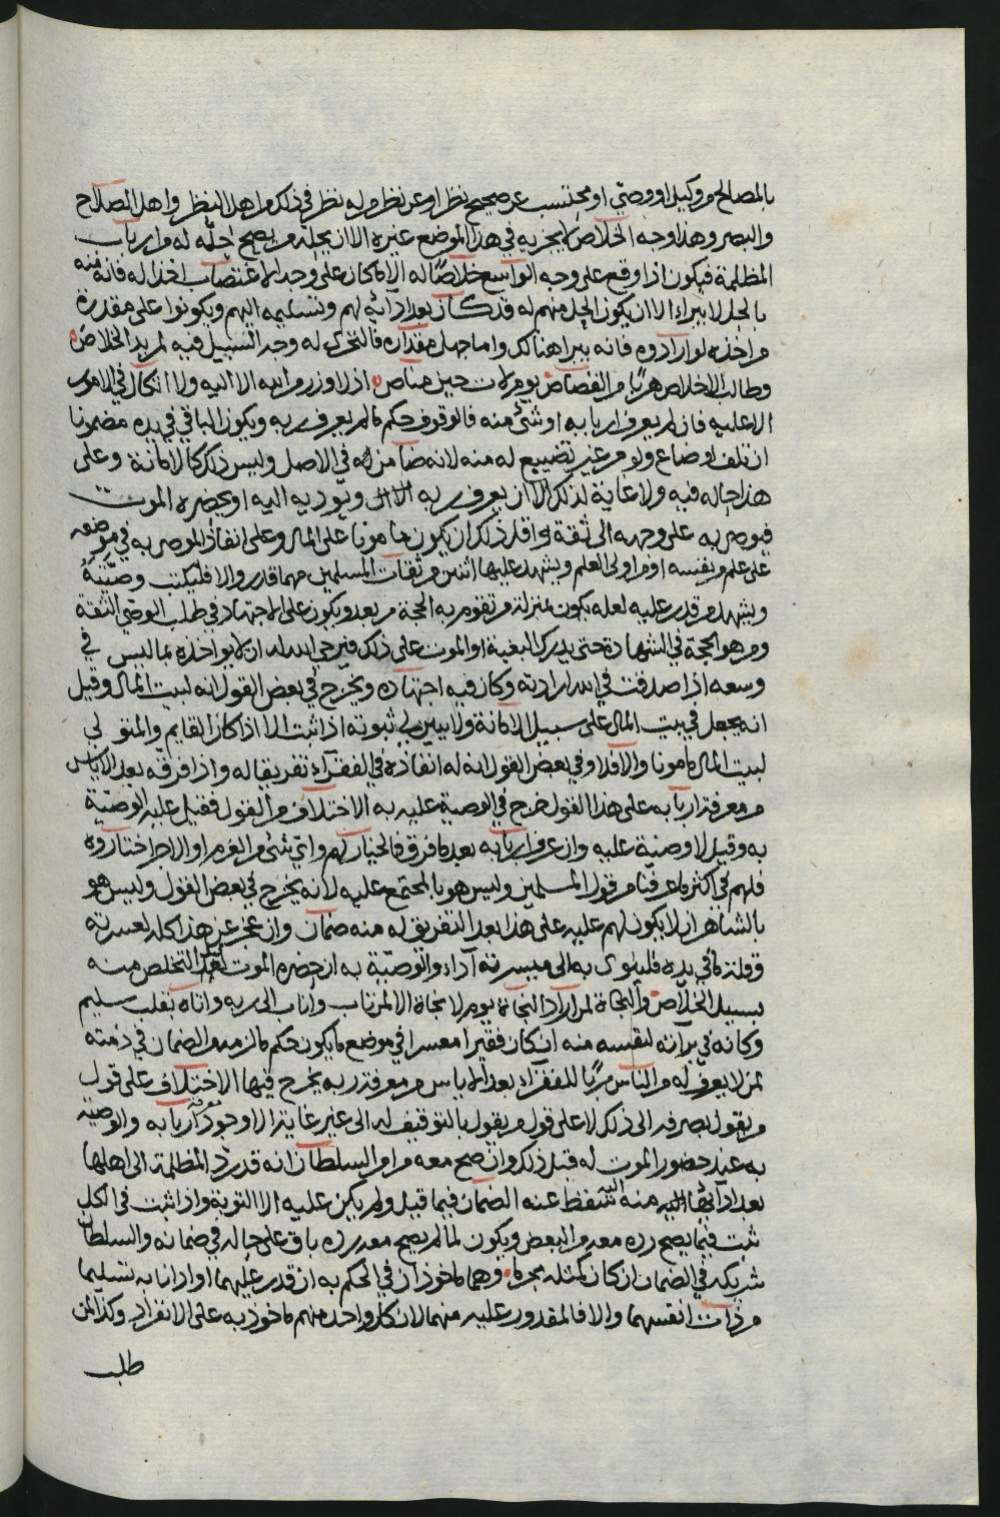 بالمصالح من وكيل او وصي او محتسب عن صحيح نظر او عن نظر من له نظر في ذلك من اهل النظر واهل الصلاح
والبصر وهذا وجه الخلاص لا يجزيه في هذا الموضع غيره الا ان يحله من يصح احلّه له من ارباب
المظلمة فيكون اذا وقع على وجه الواسع خلاصًا له الا ما كان على وجه الاغتصاب اخذا له فانه منه
بالحل لا يبراء الا ان يكون الحل منهم له قد كان بعد ادائه لهم وتسليمه اليهم ويكونوا على مقدرة
من اخذه لو ارادوه فانه يبرا هنالك واما جهل مقداره فالتحري له وجد السبيل فيه لمريد الخلاص
وطالب الاخلاص هربا من القصاص يوم لات حين مناص اذ لا وزر من الله الا اليه ولا اتكال في الامور
الا عليه فان لم يعرف اربابه او شئ منه فالوقوف حكم ما لم يعرف ربه ويكون الباقي في يده مضمونا
ان تلف او ضاع ولو من غير تضييع له منه لانه ضامن له في الاصل وليس ذلك كالامانة وعلى
هذا حاله فيه ولا غاية لذلك الا ان يعرف ربه ويؤديه اليه او يحضره الموت
فيوصي به على وجهه الى ثقة او اقل ذلك ان يكون مامونا على المال وعلى انفاذ الموصى به في موضعه
على علم من نفسه او من اولى العلم ويشهد عليها اثنين من ثقات المسلمين مهما قدر والا فليكتب وصيته
ويشهد من قدر عليه لعله يكون بمنزلة من تقوم به الحجة من بعد ويكون على الاجتهاد في طلب الوصي الثقة
ومن هو الحجة في الشهادة حتى يدرك البغية او الموت على ذلك فيرجى الله له ان لا يواخذه بما ليس في
وسعه اذا صدقت في الله ارادته وكان فيه اجتهاده ويخرج في بعض القول انه لبيت المال وقيل
انه يجعل في بيت المال على سبيل الامانة ولا يبين لي ثبوته اذا ثبت الا اذا كان القايم والمتولي
لبيت المال مامونا والا فلا وفي بعض القول انه له انفاذه في الفقراء تفريقا له واذا فرقه بعد الاياس
من معرفة اربابه على هذا القول خرج في الوصية عليه به الاختلاف من القول فقيل عليه الوصية
به وقيل لا وصية عليه وان عرف اربابه بعد ما فرق فالخيار لهم واي شئ من الغرم او الاجر اختاروه
فلهم في اكثر ما عرفنا من قول المسلمين وليس هو بالمجتمع عليه لانه يخرج في بعض القول وليس هو
بالشاهر ان لا يكون لهم عليه على هذا بعد التفريق له منه ضمان وان عجز عن هذا كله لعسرته
وقلة ما في يده فلينوى به الى ميسرته آداء والوصية به ان حضره الموت التخلص منه
بسبيل الخلاص والنجاة لمن اراد النجاة يوم لا نجاة الا لمن تاب وأناب الى ربه واتاه بقلب سليم
وكانه في برآته لنفسه منه ان كان فقيرا معسرا في موضع ما يكون حكم ما لزمه من الضمان في ذمته
لمن لا يعرف له من الناس ربّا للفقراء بعد الاياس من معرفة ربه يخرج فيها الاختلاف على قول
من يقول بصرفه الى ذلك لا على قول من يقول بالتوقيف له الى غير غاية الا وجود معرفة اربابه والوصية
به عند حضور الموت له قبل ذلك وان صح معه من امر السلطان انه قد رد المظلمة الى اهلها
بعد ادآئها اليه منه سقط عنه الضمان فيما قيل ولم يكن عليه الا التوبة واذا ثبت في الكل
ثبت فيما يصح رده معه من البعض ويكون لما لم يصح معه رده باق على حاله في ضمانه والسلطان
شريكه في الضمان ان كان كمثله مجرما وهما ماخوذان في الحكم به ان قدر عليهما او ادانا به تسليما
من ذات انفسهما والا فالمقدور عليه منهما لان كل واحد منهم ماخوذ به على الانفراد وكذا لمن
طلب